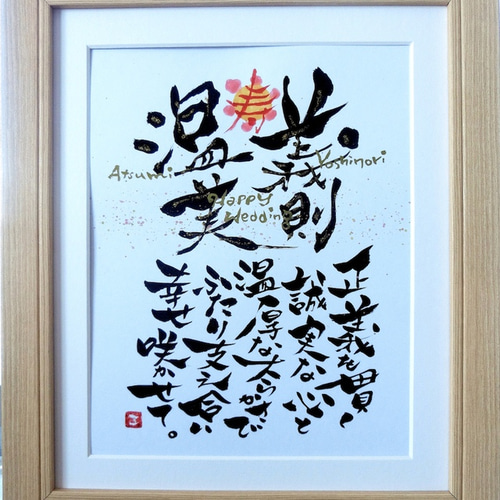 寿
義則
Yoshinori
温実
Atsumi
Happy
Wedding
正義を貫く
誠実な心と
温厚な大らかさで
ふたり支え合い
幸せ咲かせて。